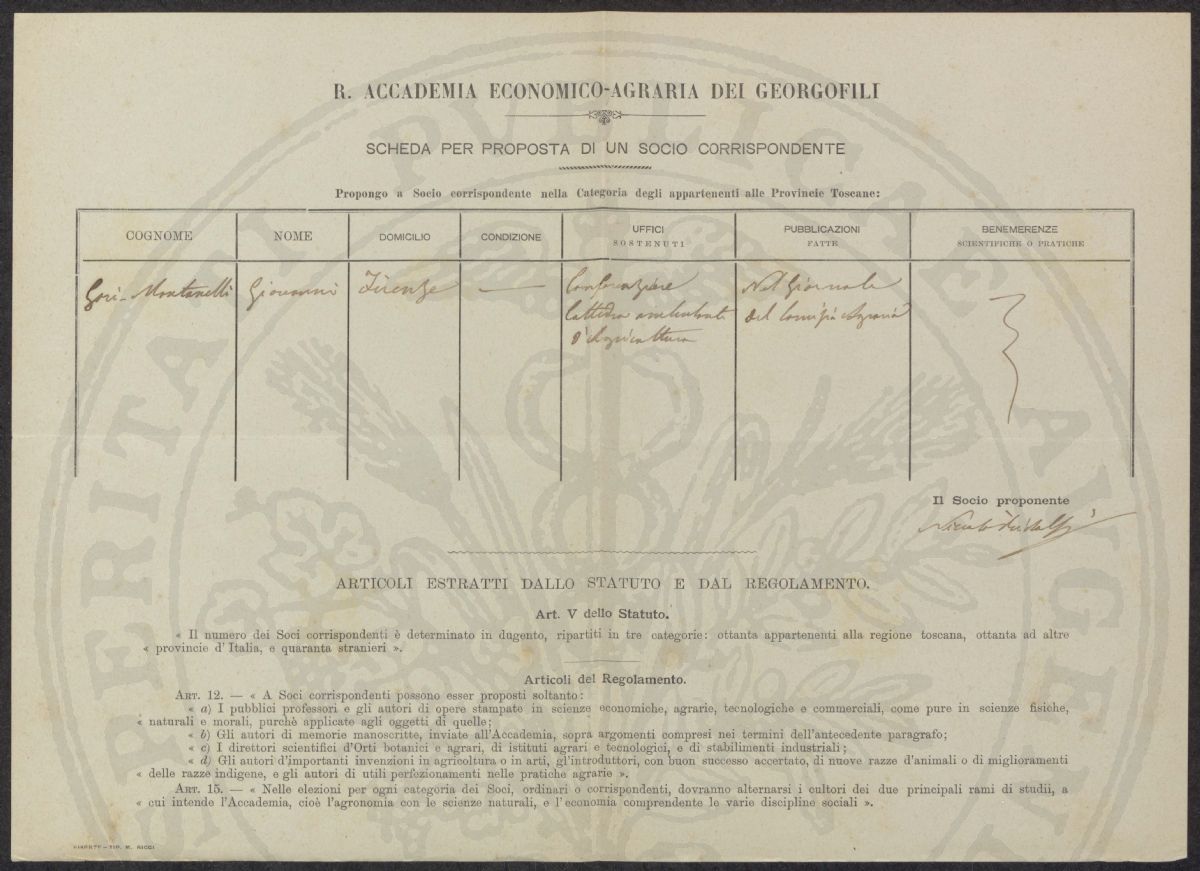 R. ACCADEMIA ECONOMICO-AGRARIA DEI GEORGOFILI
SCHEDA PER PROPOSTA DI UN SOCIO CORRISPONDENTE
Propongo a Socio corrispondente nella Categoria degli appartenenti alle Provincie Toscane:
COGNOME
NOME
DOMICILIO
CONDIZIONE
UFFICI
SOSTENUTI
PUBBLICAZIONI
FATTE
BENEMERENZE
SCIENTIFICHE O PRATICHE
Gori-Montanelli
Giovanni
Firenze
—
Conferenziere
Cattedra ambulante
d'Agricoltura
Nel Giornale
del Comizio Agrario
Il Socio proponente
Niccolò Ridolfi
ARTICOLI ESTRATTI DALLO STATUTO E DAL REGOLAMENTO.
Art. V dello Statuto.
« Il numero dei Soci corrispondenti è determinato in dugento, ripartiti in tre categorie: ottanta appartenenti alla regione toscana, ottanta ad altre
« provincie d'Italia, e quaranta stranieri ».
Articoli del Regolamento.
ART. 12. — « A Soci corrispondenti possono esser proposti soltanto:
« a) I pubblici professori e gli autori di opere stampate in scienze economiche, agrarie, tecnologiche e commerciali, come pure in scienze fisiche,
« naturali e morali, purchè applicate agli oggetti di quelle;
« b) Gli autori di memorie manoscritte, inviate all'Accademia, sopra argomenti compresi nei termini dell'antecedente paragrafo;
« c) I direttori scientifici d'Orti botanici e agrari, di istituti agrari e tecnologici, e di stabilimenti industriali;
« d) Gli autori d'importanti invenzioni in agricoltura o in arti, gl'introduttori, con buon successo accertato, di nuove razze d'animali o di miglioramenti
« delle razze indigene, e gli autori di utili perfezionamenti nelle pratiche agrarie ».
ART. 15. — « Nelle elezioni per ogni categoria dei Soci, ordinari o corrispondenti, dovranno alternarsi i cultori dei due principali rami di studii, a
« cui intende l'Accademia, cioè l'agronomia con le scienze naturali, e l'economia comprendente le varie discipline sociali ».
FIRENZE—TIP. M. RICCI